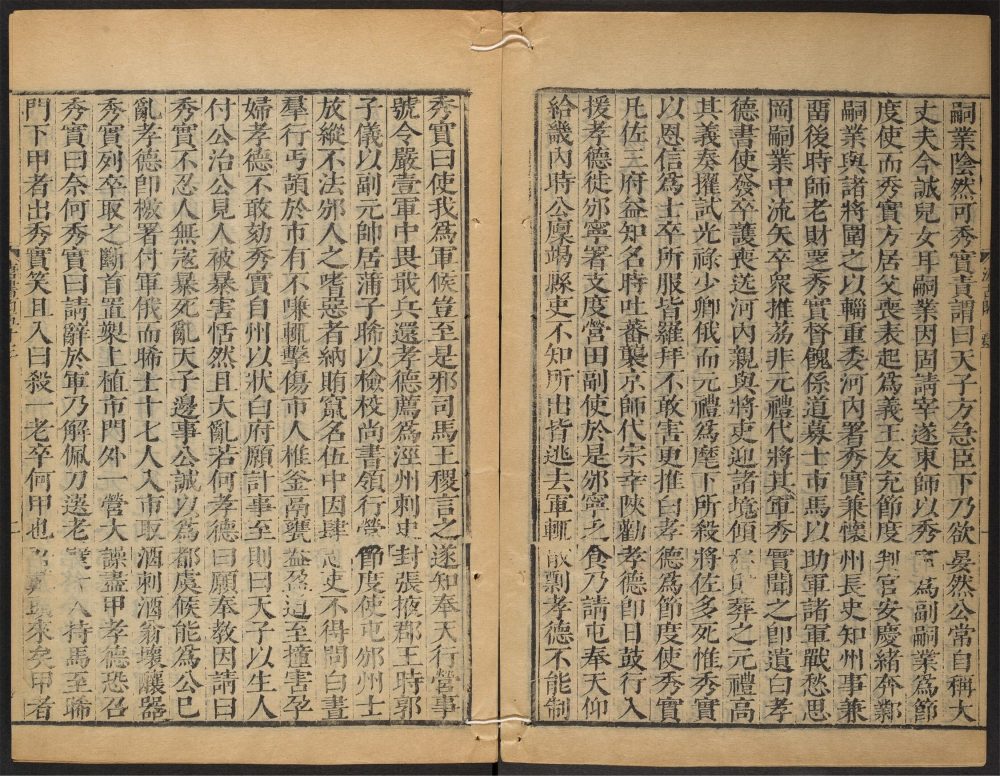 嗣業陰然可秀實責謂曰天子方急臣下乃欲晏然公常自稱大
丈夫今誠兒女耳嗣業因固請宰遂東師以秀爲副嗣業爲節
度使而秀實方居父喪表起爲義王友充節度判官安慶緒奔鄴
嗣業與諸將圍之以輜重委河內署秀實兼懷州長史知州事兼
留後時師老財覂秀實督餽係道募士市馬以助軍諸軍戰愁思
岡嗣業中流矢卒衆推荔非元禮代將其軍秀實聞之即遺白孝
德書使發卒護喪送河內親與將吏迎諸境傾私財葬之元禮高
其義奏擢試光祿少卿俄而元禮爲麾下所殺將佐多死惟秀實
以恩信爲士卒所服皆羅拜不敢害更推白孝德爲節度使秀實
凡佐三府益知名時吐蕃襲京師代宗幸陝勸孝德即日鼓行入
援孝德徙邠寧署支度營田副使於是邠寧乏食乃請屯奉天仰
給畿內時公廩竭縣吏不知所出皆逃去軍輒散剽孝德不能制
秀實曰使我爲軍候豈至是邪司馬王稷言之遂知奉天行營事
號令嚴壹軍中畏戢兵還孝德薦爲涇州刺史封張掖郡王時郭
子儀以副元帥居蒲子晞以檢校尚書領行營節度使屯邠州士
放縱不法邠人之嗜惡者納賄竄名伍中因肆吏不得問白晝
羣行丐頡於市有不嗛輒擊傷市人椎釜鬲甕盎盈道至撞害孕
婦孝德不敢劾秀實自州以狀白府願計事至則曰天子以生人
付公治公見人被暴害恬然且大亂若何孝德曰願奉教因請曰
秀實不忍人無寇暴死亂天子邊事公誠以爲都虞候能爲公已
亂孝德即檄署付軍俄而晞士十七人入市取酒刺酒翁壞釀器
秀實列卒取之斷首置槊上植市門外一營大譟盡甲孝德恐召
秀實曰奈何秀實曰請辭於軍乃解佩刀選老躄一人持馬至晞
門下甲者出秀實笑且入曰殺一老卒何甲也吾戴頭來矣甲者